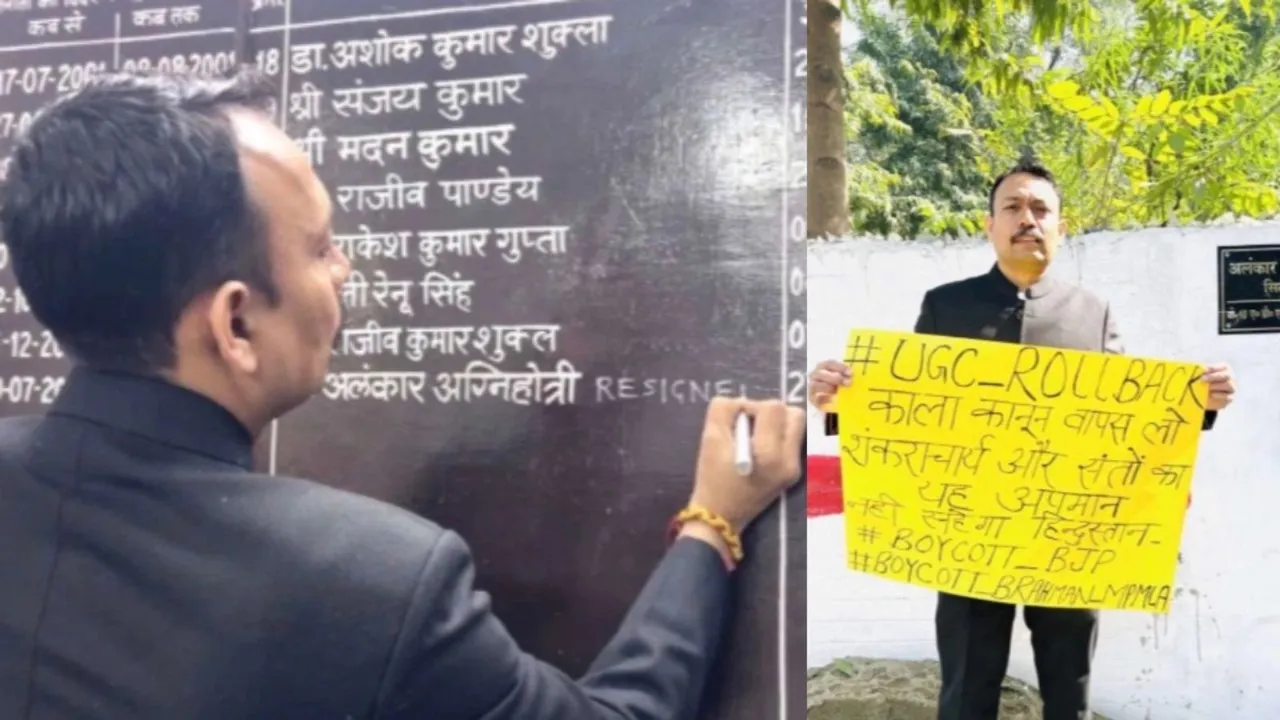 कब से
कब तक
17-07-2001 08-08-2001 18 डा. अशोक कुमार शुक्ला
श्री संजय कुमार
मदन कुमार
राजीव पाण्डेय
राकेश कुमार गुप्ता
रेनू सिंह
राजीव कुमार शुक्ल
अलंकार अग्निहोत्री RESIGNE
#UGC_ROLLBACK
काला कानून वापस लो
शंकराचार्य और संतों का
यह अपमान
नहीं सहेगा हिन्दुस्तान-
# BOYCOTT_BJP
#BOYCOTT_BRAHMAN_MPMLA
अलंकार